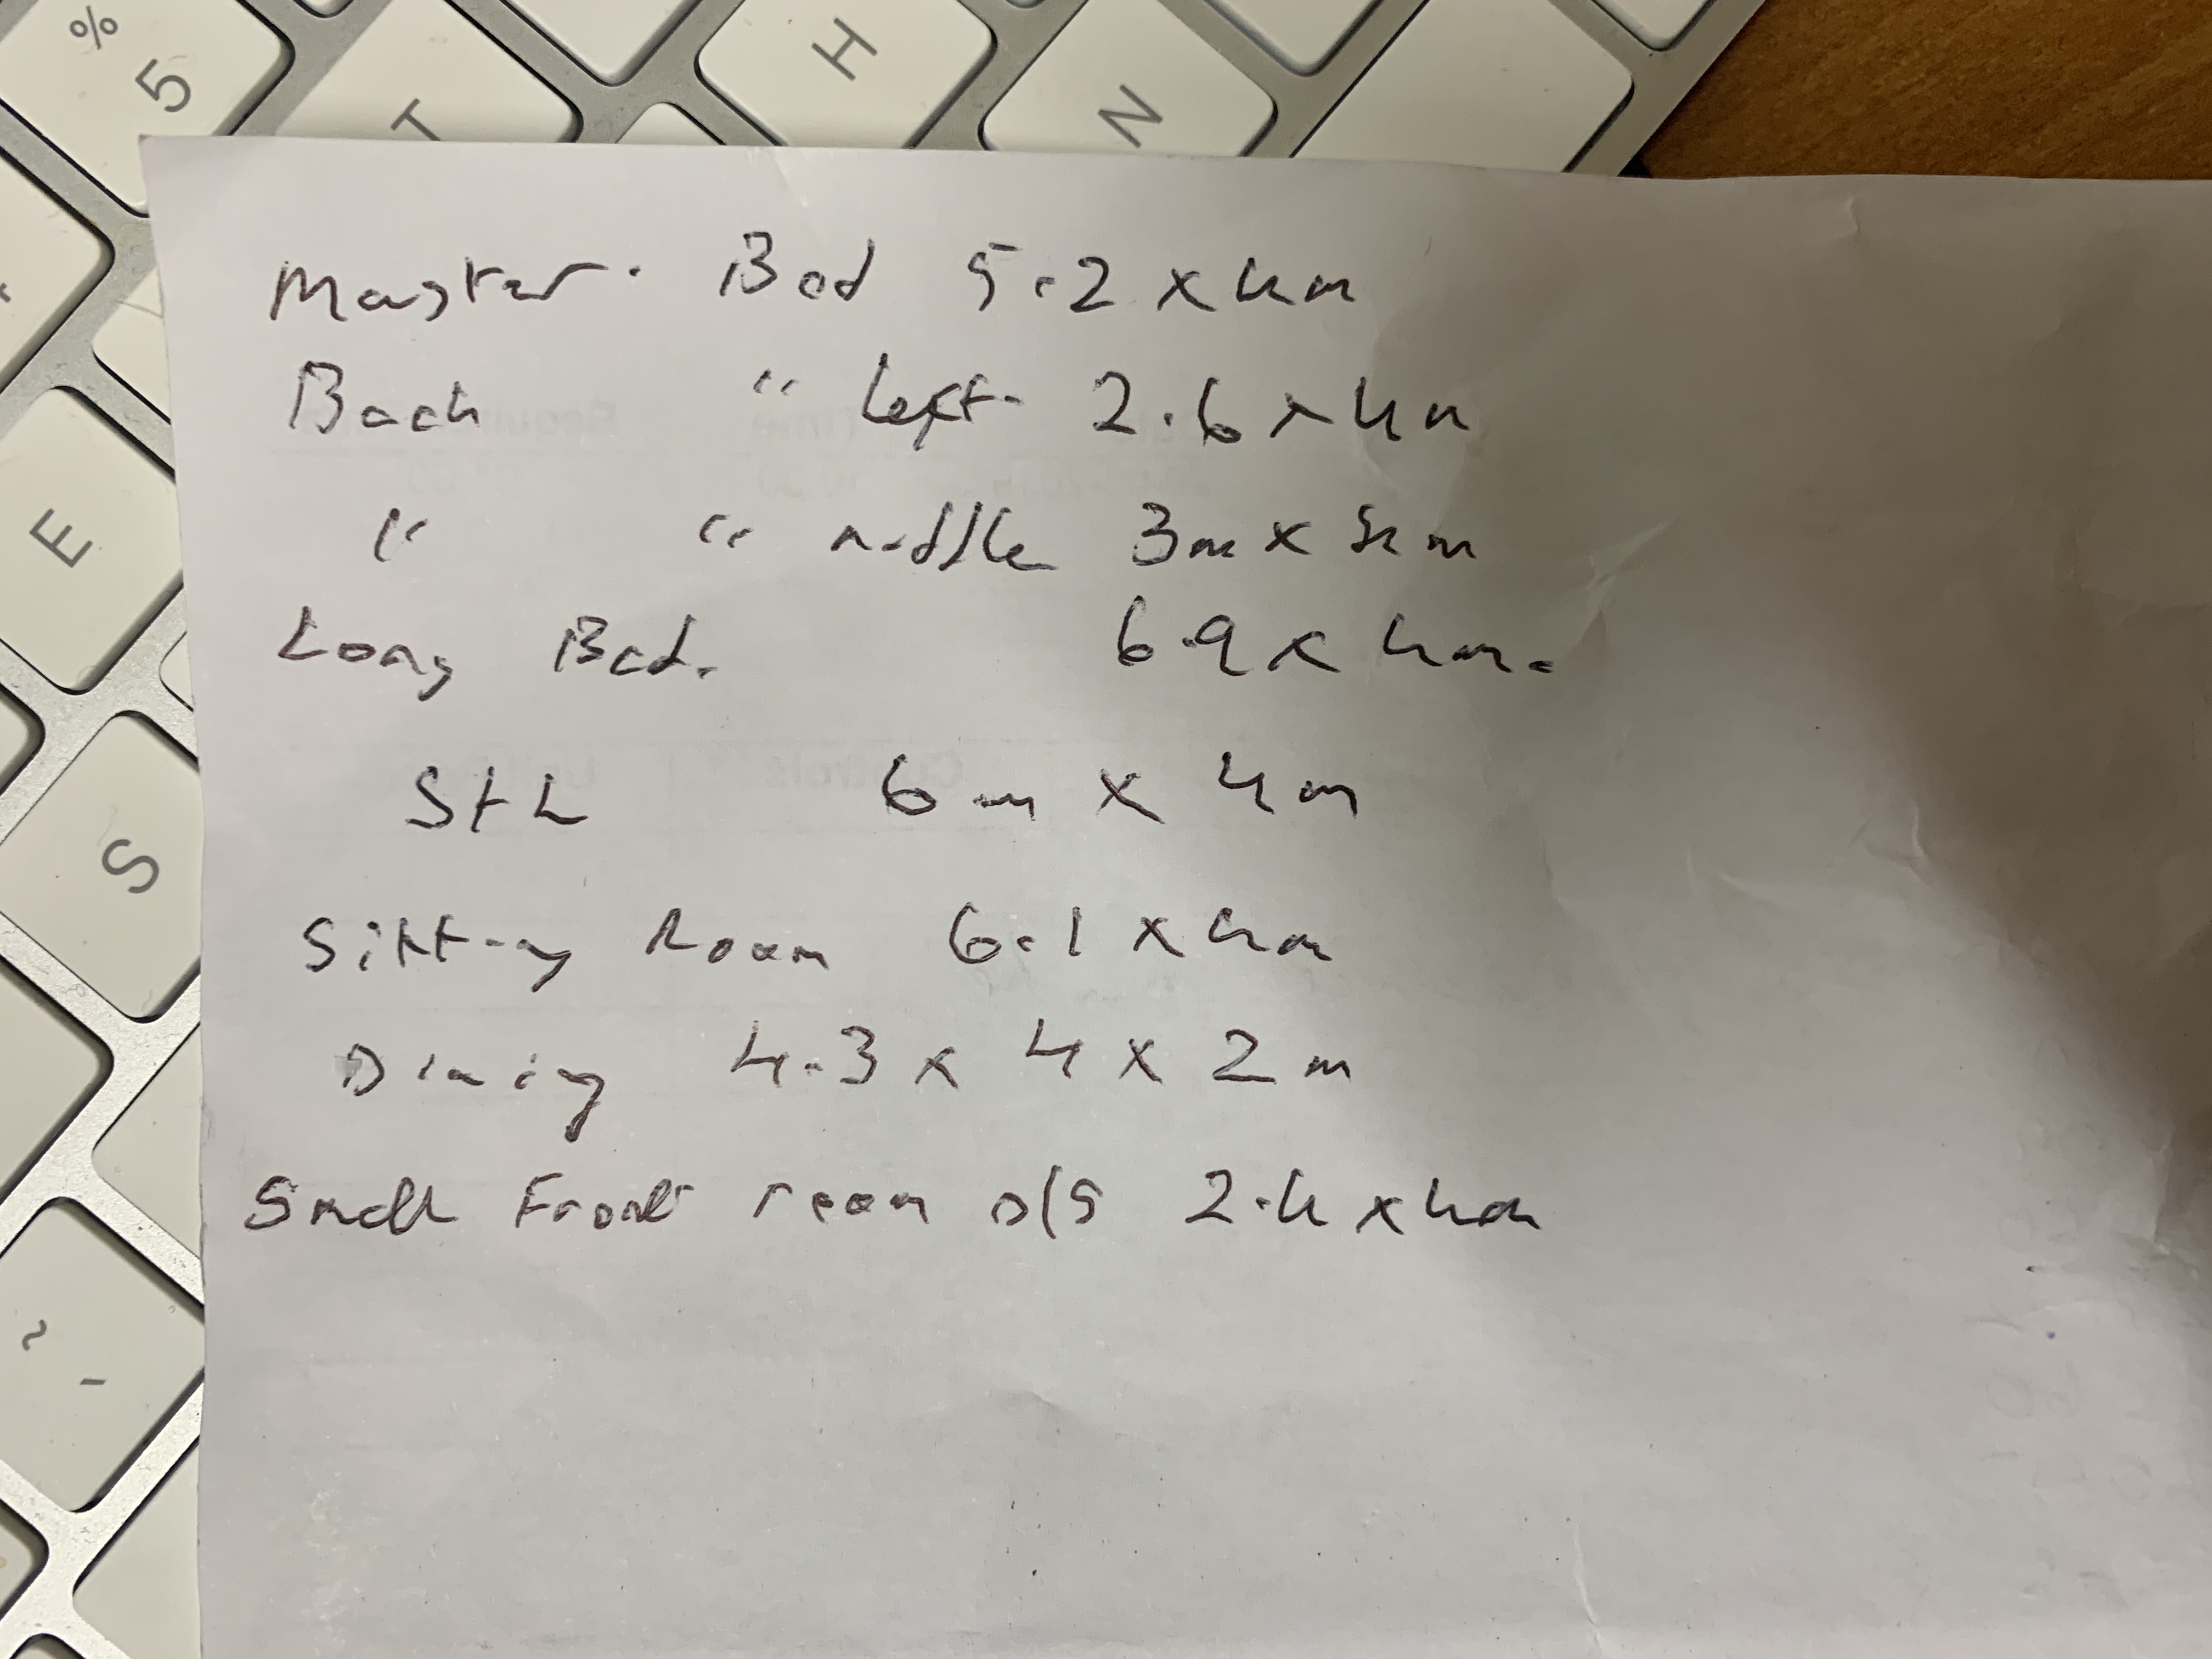 % 5 T H N
E
S
~ `
Master. Bed 5.2 x 4m
Back " Left 2.6 x 4m
" " middle 3m x 4m
Long Bed. 6.9 x 4m.
StL 6m x 4m
Sitting Room 6.1 x 4m
Dining 4.3 x 4 x 2m
Small Front room D/S 2.4 x 4m